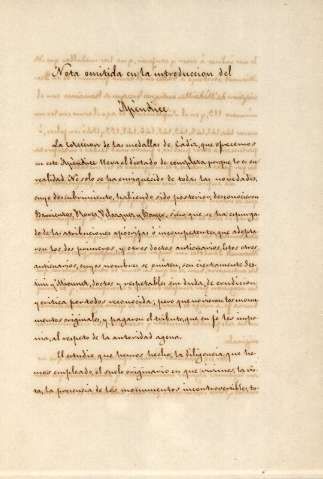 Nota omitida en la introduccion del
Apéndice.
La coleccion de las medallas de Cádiz, que ofrecemos
en este Apéndice lleva el dictado de completa porque lo es en
realidad. No solo se ha enriquecido de todas las novedades,
cuyo descubrimiento, habiendo sido posterior, desconocieron
Barrientos, Florez, Velazquez y Bayer, sino que se ha espurga-
do de las atribuciones apócrifas é incompetentes que adopta-
ron los dos primeros, y otros doctos anticuarios. Estos otros
anticuarios, cuyos nombres se omiten, son ciertamente Ses-
tini y Mionnet, doctos y respetables sin duda, de erudicion
y critica por todos reconocida; pero que no vieron los monu-
mentos originales, y pagaron el tributo, que en fé les impu-
so, al respeto de la autoridad agena.
El estudio que hemos hecho, la diligencia que he-
mos empleado, el suelo originario en que vivimos, la vis-
ta, la presencia de los monumentos incontrovertibles, to-